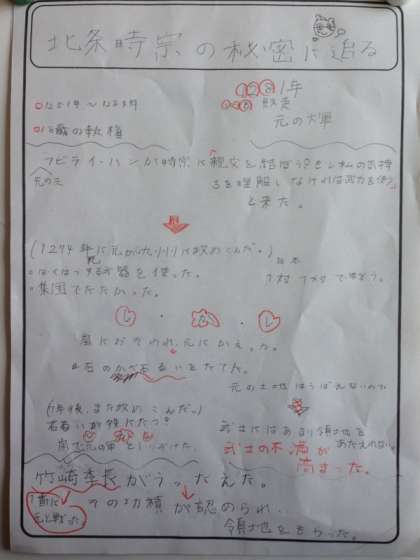 北条時宗の秘密に迫る
1281年
○1251年～1284年
敗走
元の大軍
○18歳の執権
フビライ・ハンが時宗に
を結ぼう?もし私の気持
元の王
ちを理解しなければ武力を使う
と来た。
(1274年に元が九州に攻めこんだ。)
・ばくはつする武器を使った。
日本
・集団でたたかった。
1対1で
し・か・し
嵐におそわれ、元にかえった。
石の
るいをたてた。
元の土地はうばえないので
(7年後、また攻めこんだ。)
石るいが役にたつ?
武士にはあまり領地を
あたえれない。
嵐で元の軍をおいかけた。
武士の不満が
高まった。
竹崎季長がうったえた。
元と戦った
その功績が認められ、
領地をもらった。